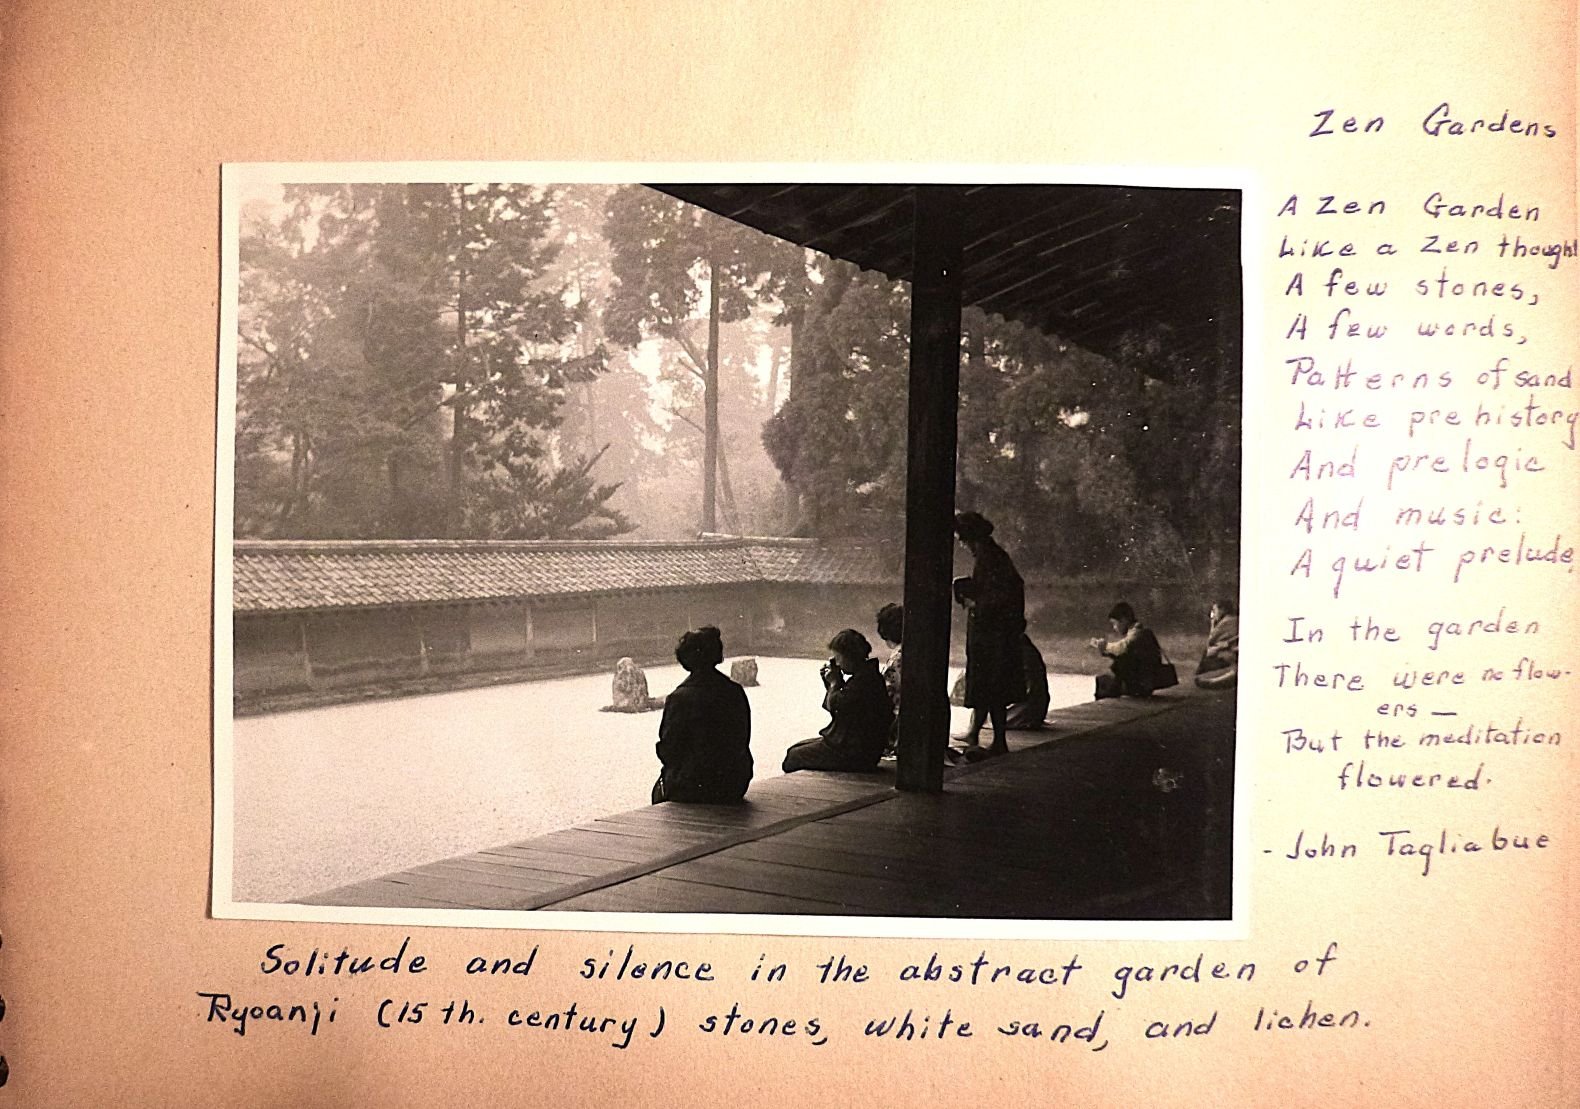 Zen Gardens
A Zen Garden
Like a Zen thought
A few stones,
A few words,
Patterns of sand
Like prehistory
And prelogic
And music:
A quiet prelude,
In the garden
There were no flow-
ers —
But the meditation
flowered.
- John Tagliabue
Solitude and silence in the abstract garden of
Ryoanji (15 th. century) stones, white sand, and lichen.